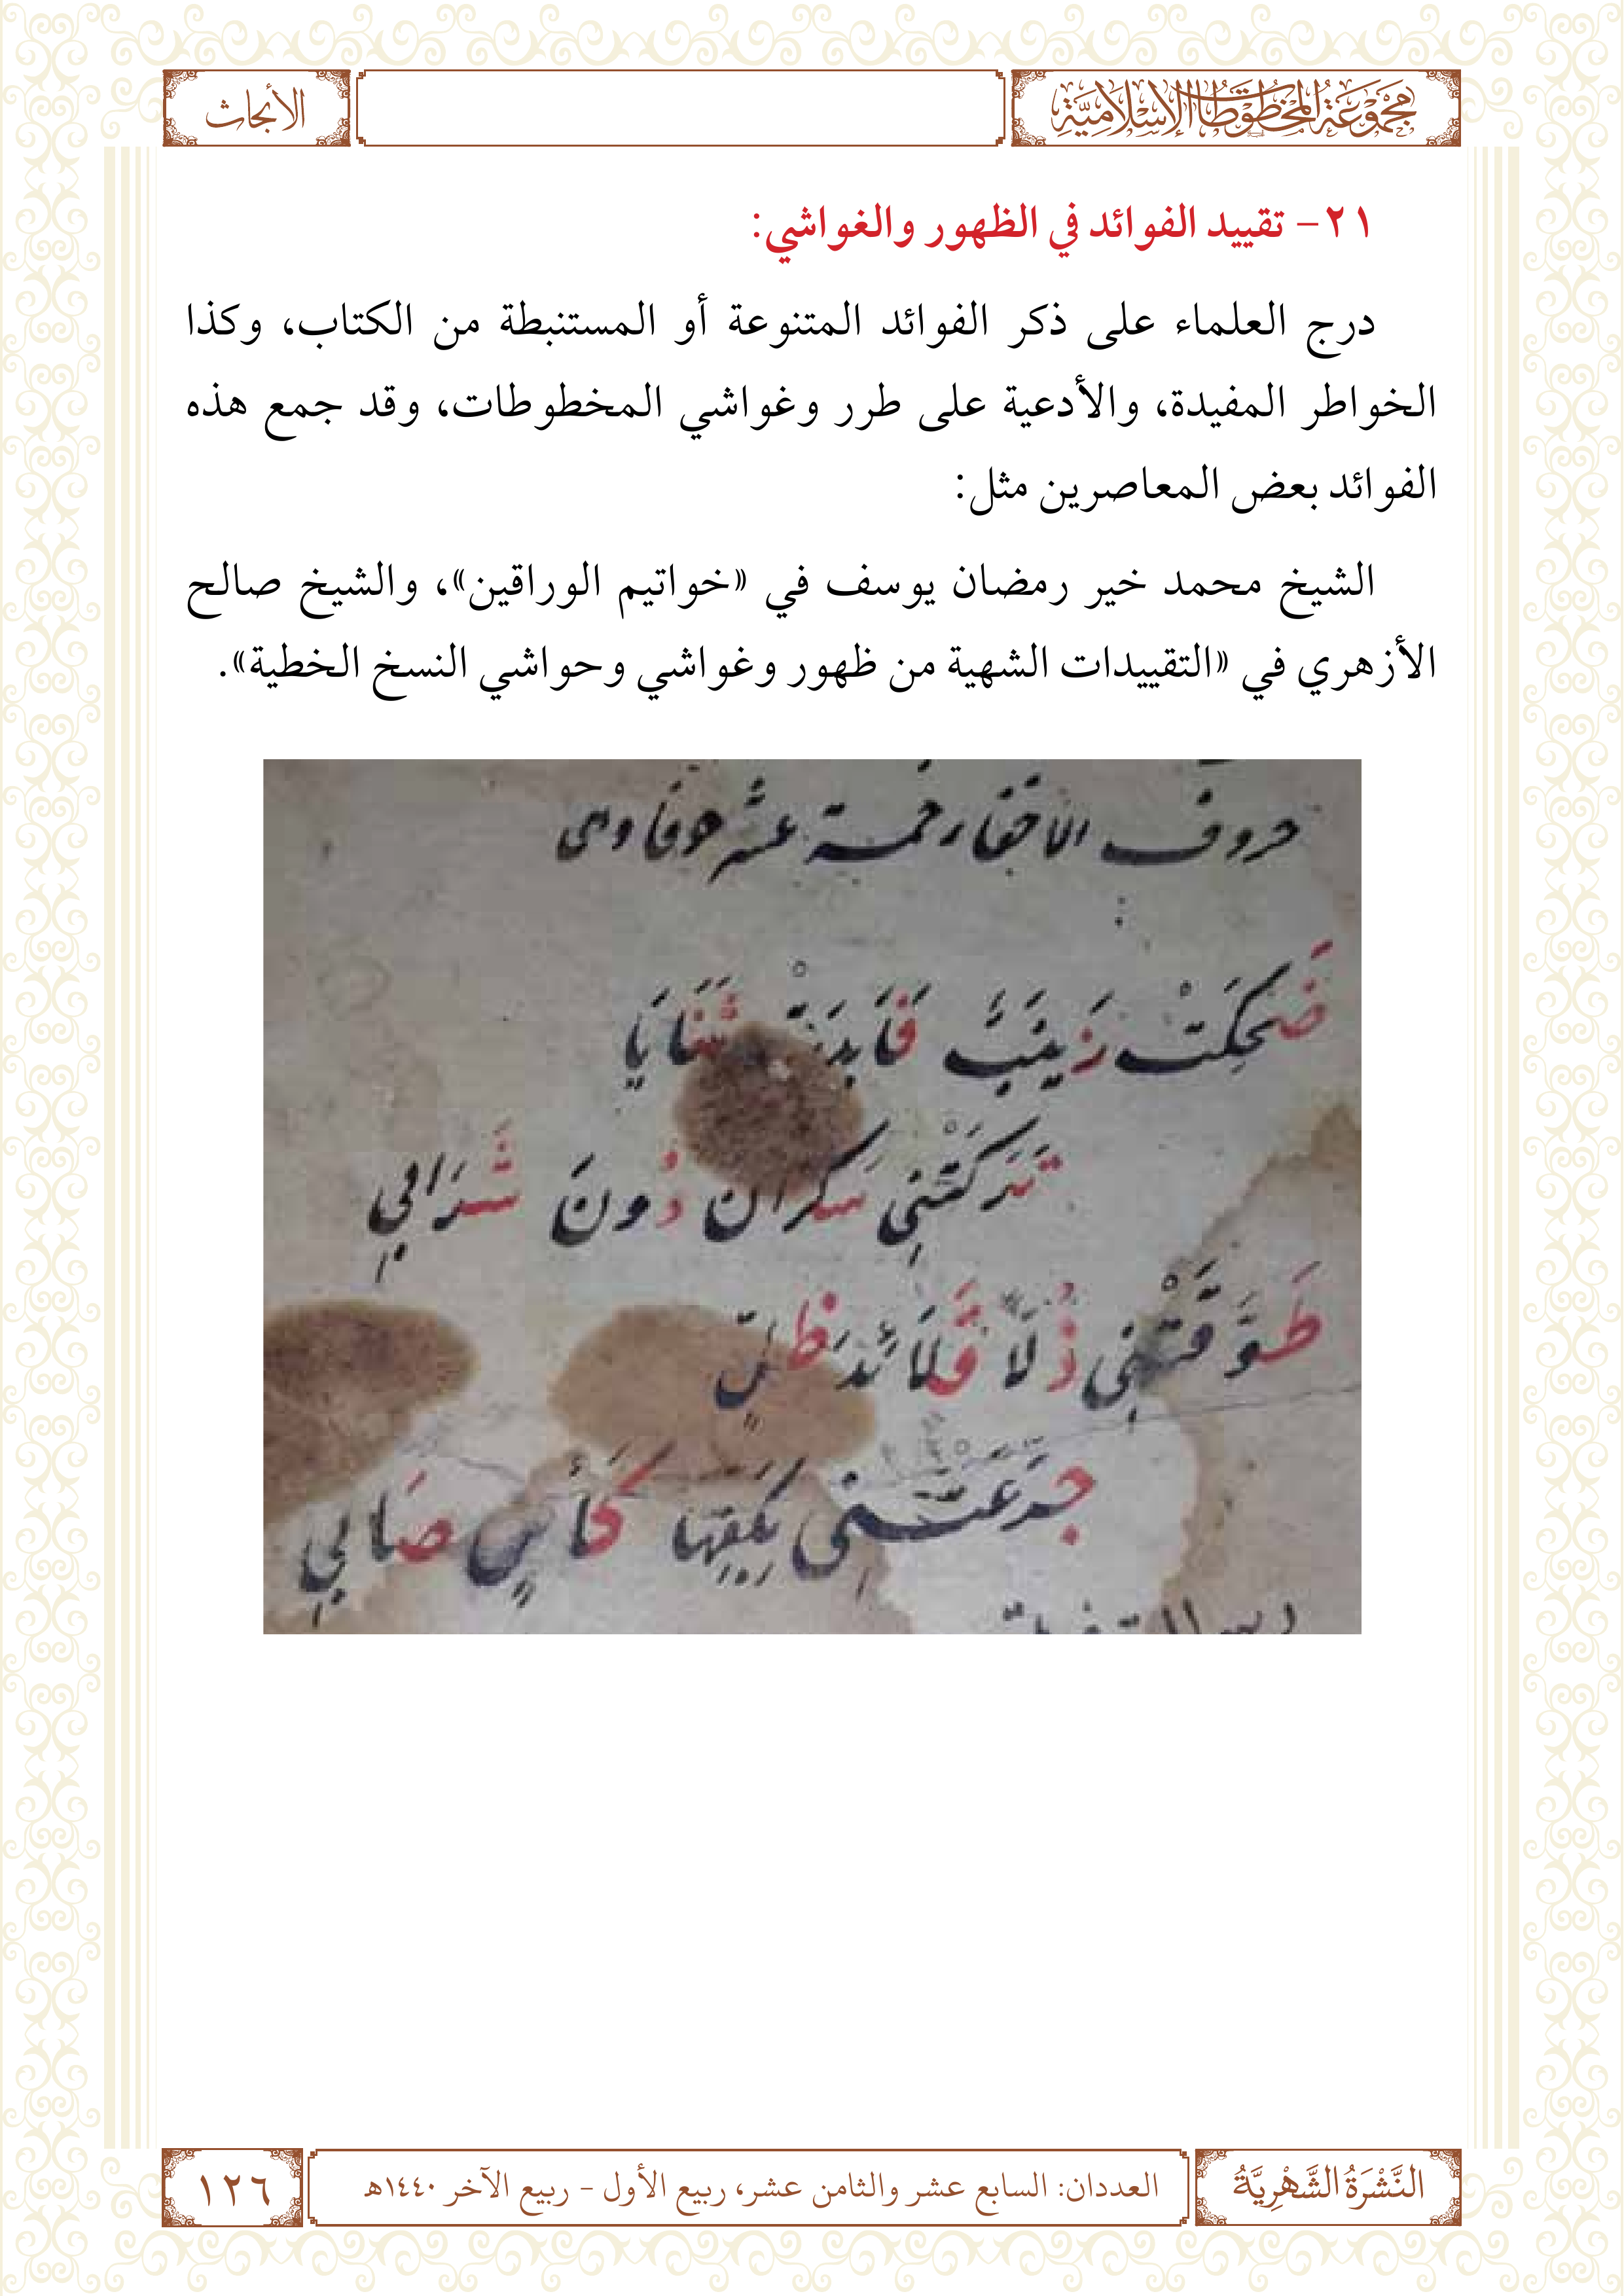 مَجْمُوعَةُ المَخْطُوطَاتِ الإِسْلَامِيَّةِ
الأبحاث
٢١- تقييد الفوائد في الظهور والغواشي:
درج العلماء على ذكر الفوائد المتنوعة أو المستنبطة من الكتاب، وكذا
الخواطر المفيدة، والأدعية على طرر وغواشي المخطوطات، وقد جمع هذه
الفوائد بعض المعاصرين مثل:
الشيخ محمد خير رمضان يوسف في «خواتيم الوراقين»، والشيخ صالح
الأزهري في «التقييدات الشهية من ظهور وغواشي وحواشي النسخ الخطية».
حروف الاخفا خمسة عشر حرفا وهى
ضَحِكَتْ زَينَبٌ فَاَبدَتْ ثَنَايَا
تَرَكَتْنِي سَكرَان دُونَ شَرَابِي
طَوَّقَتْنِي ذُلًّا قَلَائدَ ظلمٍ
جَرَّعَتْنِي بِكَفِّهَا كَأسٍ صَابِي
النَّشْرَةُ الشَّهْرِيَّةُ
العددان: السابع عشر والثامن عشر، ربيع الأول - ربيع الآخر ١٤٤٠هـ
١٢٦